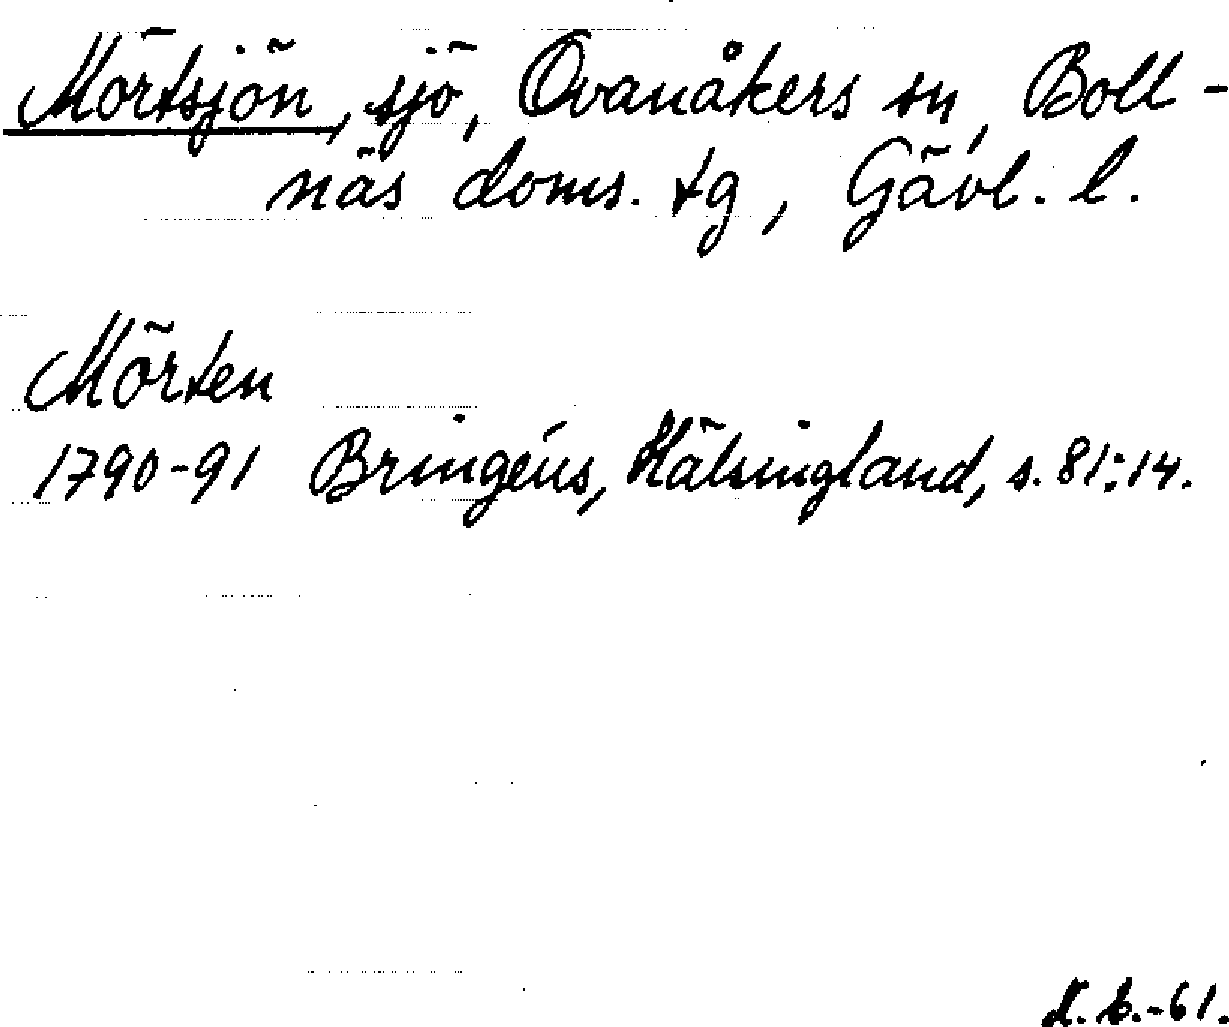 Mörtsjön, sjö, Ovanåkers sn, Boll-
näs doms. tg, Gävl. l.
Mörten
1790-91 Bringéus, Hälsingland, s. 81:14.
-61.